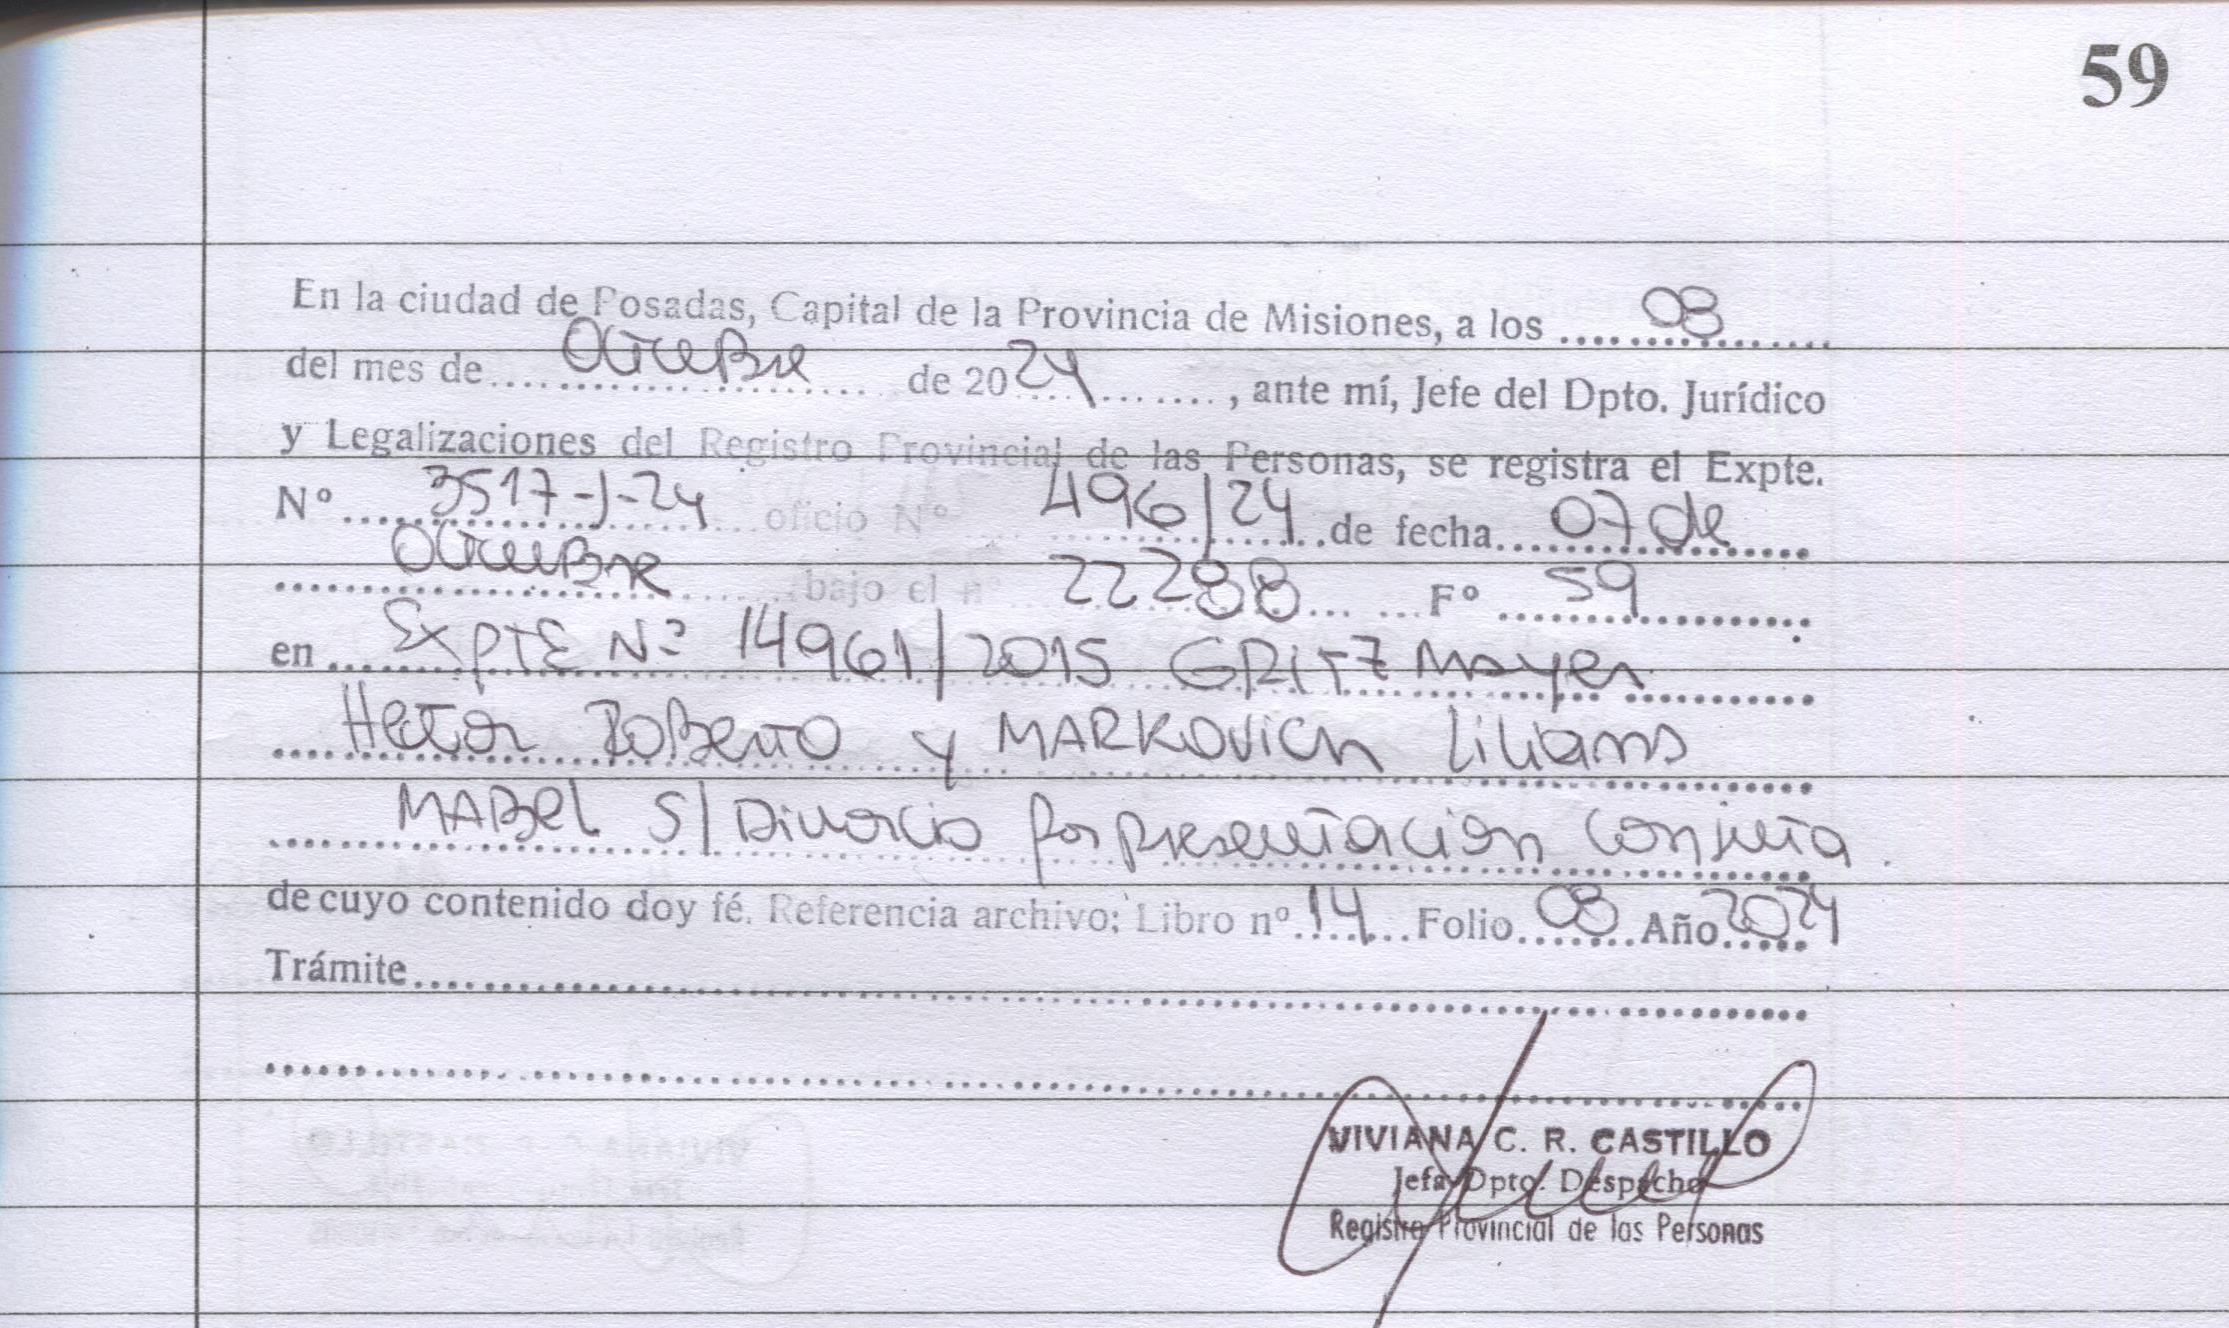 59
En la ciudad de Posadas, Capital de la Provincia de Misiones, a los 08
del mes de Octubre de 2024, ante mí, Jefe del Dpto. Jurídico
y Legalizaciones del Registro Provincial de las Personas, se registra el Expte.
Nº 3517-J-24 oficio Nº 496/24 de fecha 07 de
Octubre bajo el nº 22288 Fº 59
en Expte Nº 14961/2015 GRITZ Mayer
Hector Roberto y MARKOVICH Liliana
MABEL S/ Divorcio por presentacion conjunta.
de cuyo contenido doy fé. Referencia archivo: Libro nº 14 Folio 08 Año 2024
Trámite
VIVIANA C. R. CASTILLO
Jefa Dpto. Despacho
Registro Provincial de las Personas